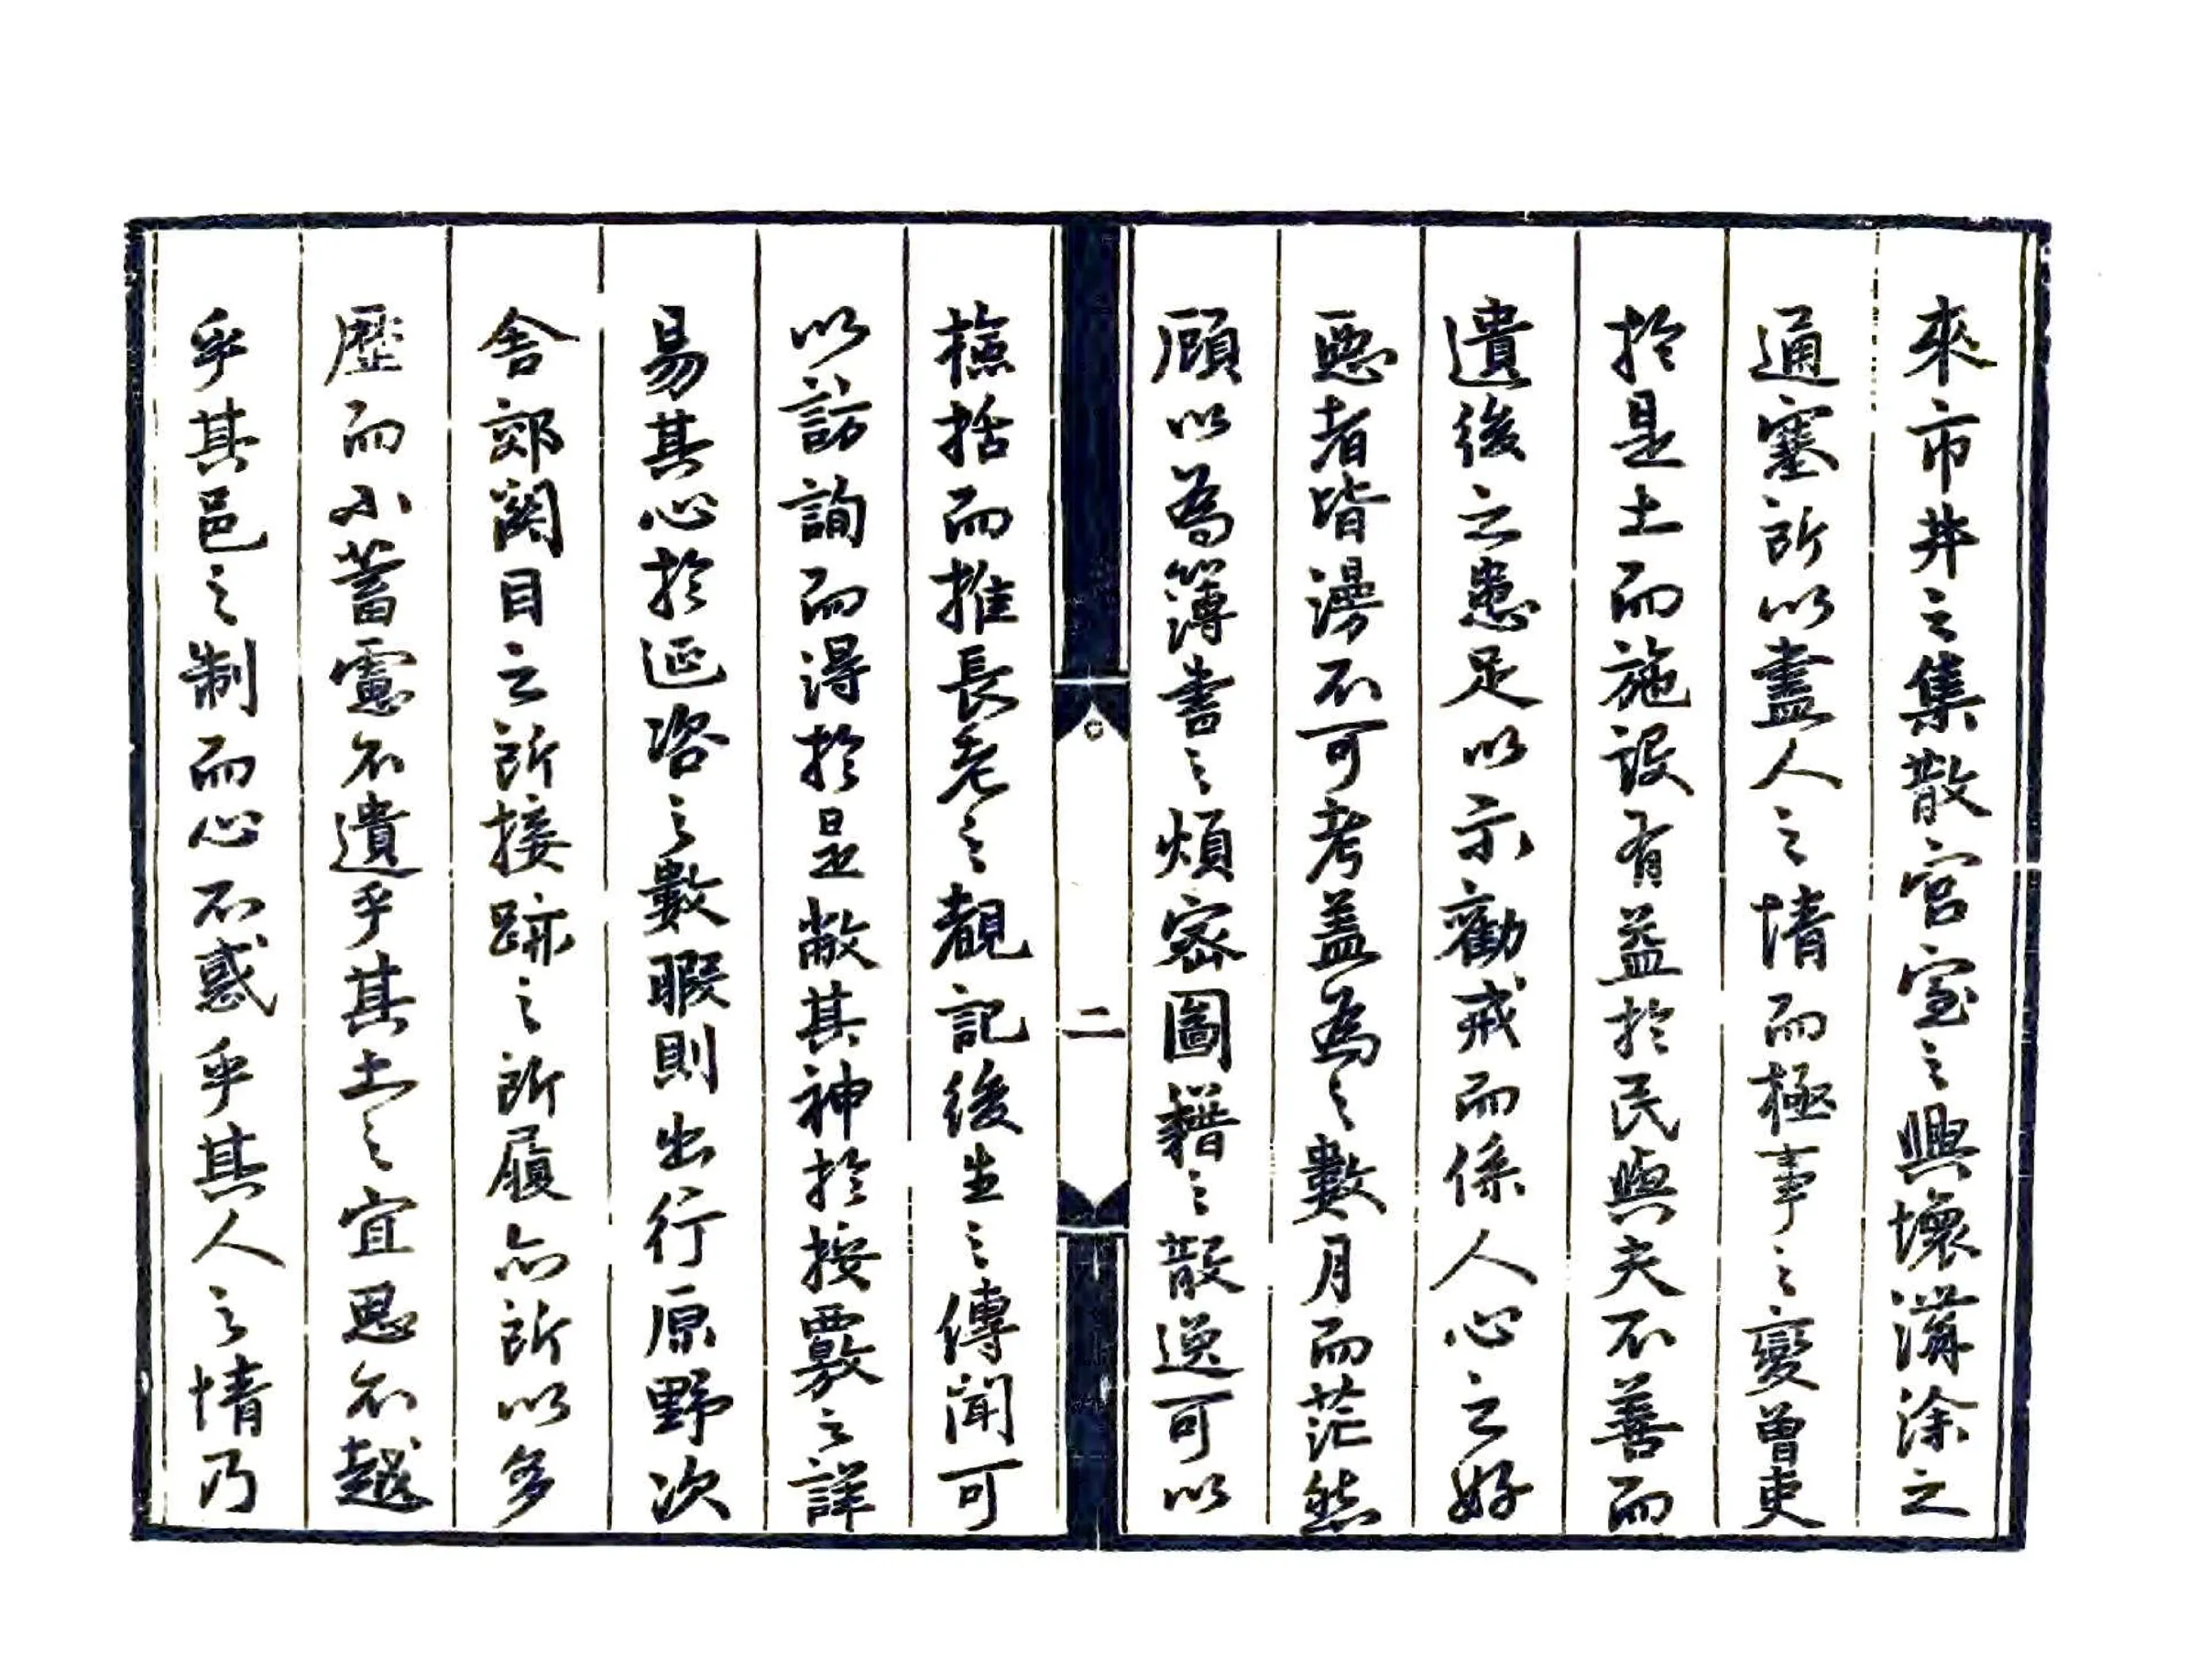 來市井之集散宮室之興壞溝涂之
通塞所以盡人之情而極事之變曽吏
扵是土而施設有益扵民與夫不善而
遺後之患足以示勸戒而係人心之好
惡者皆漫不可考盖為之數月而茫然
顧以為簿書之煩密圖籍之散逸可以
檢括而推長老之覩記後生之傳聞可
以訪詢而得扵是敝其神扵按覈之詳
易其心扵延咨之數暇則出行原野次
舎郊關目之所接跡之所履亦所以多
歷而小蓄慮不遺乎其土之宜思不越
乎其邑之制而心不惑乎其人之情乃
二